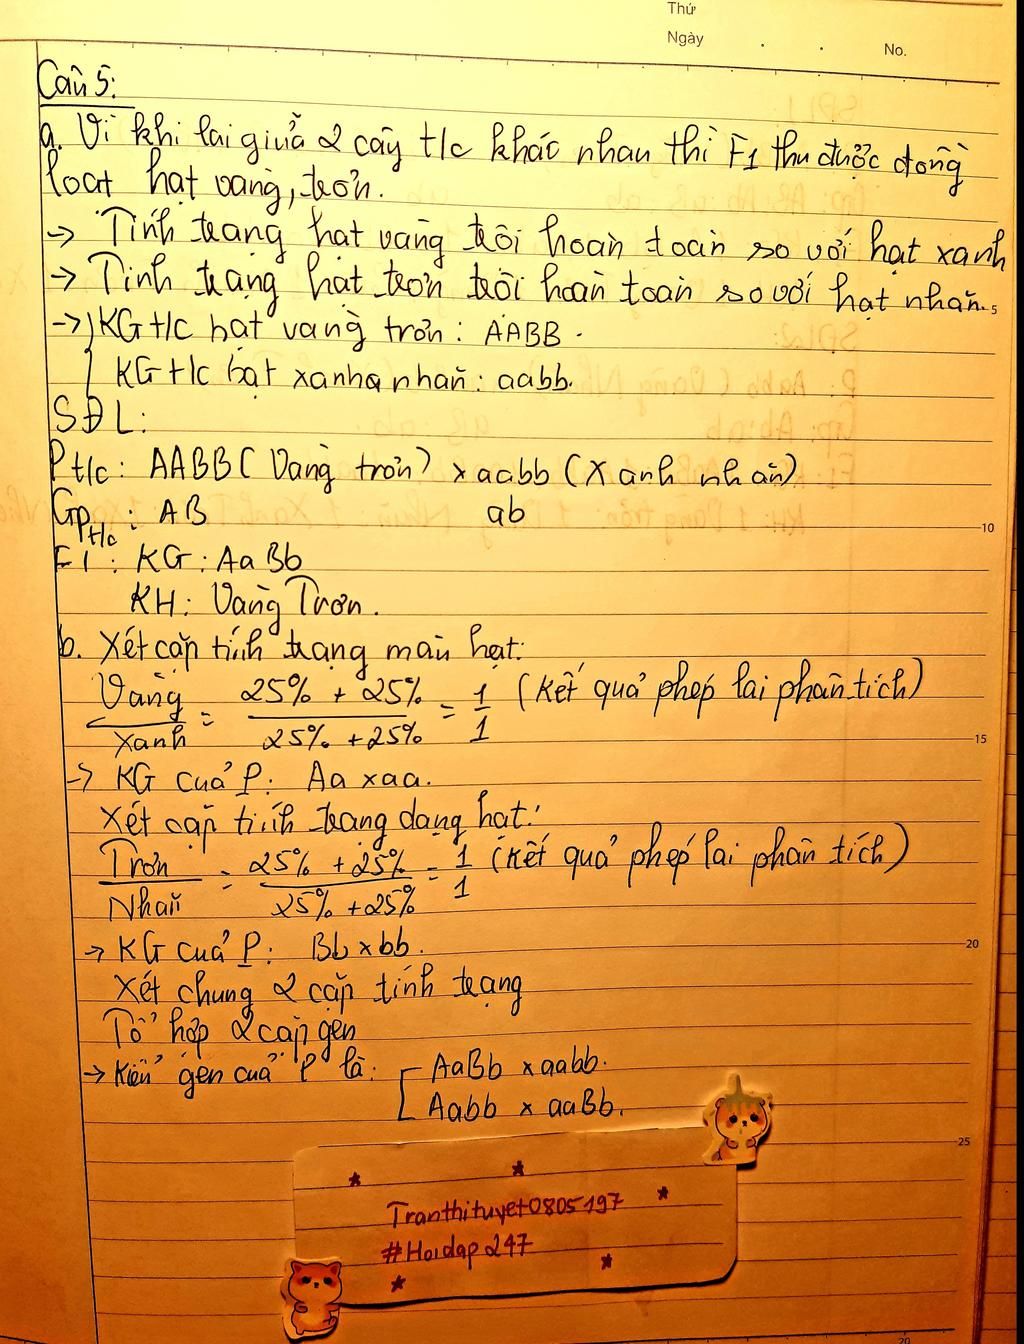 Thứ
Ngày . . No.
Câu 5:
a. Vì khi lai giữa 2 cây t/c khác nhau thì F1 thu được đồng
loạt hạt vàng, trơn.
-> Tính trạng hạt vàng trội hoàn toàn so với hạt xanh
-> Tính trạng hạt trơn trội hoàn toàn so với hạt nhăn.
5
-> KG t/c hạt vàng trơn: AABB.
KG t/c hạt xanha nhăn: aabb.
SĐL:
Pt/c: AABB (Vàng trơn) x aabb (Xanh nhăn)
GPt/c: AB ab
10
F1: KG: AaBb
KH: Vàng Trơn.
b. Xét cặp tính trạng màu hạt:
Vàng/Xanh = 25% + 25%/25% + 25% = 1/1 (Kết quả phép lai phân tích)
15
-> KG của P: Aa x aa.
Xét cặp tính trạng dạng hạt:
Trơn/Nhăn = 25% + 25%/25% + 25% = 1/1 (Kết quả phép lai phân tích)
-> KG của P: Bb x bb.
20
Xét chung 2 cặp tính trạng
Tổ hợp 2 cặp gen
-> Kiểu gen của P là: [ AaBb x aabb.
Aabb x aaBb.
25
Tranthituyet0805197
#Hoidap247